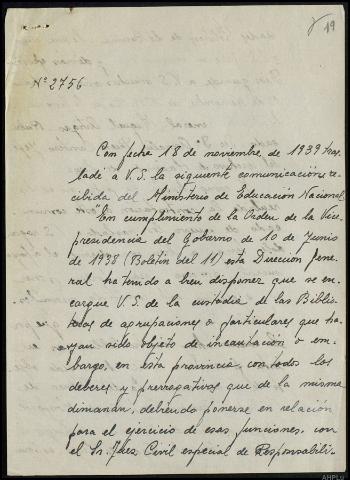 19
Nº 2756
Con fecha 18 de noviembre de 1939 tras-
ladé a V.S. la siguiente comunicación re-
cibida del Ministerio de Educación Nacional
"En cumplimiento de la Orden de la Vice-
presidencia del Gobierno de 10 de Junio
de 1938 (Boletín del 11) esta Dirección Gene-
ral ha tenido a bien disponer que se en-
cargue V.S. de la custodia de las Biblio-
tecas de agrupaciones o particulares que ha-
yan sido objeto de incautación o em-
bargo, en esta provincia, con todos los
deberes y prerrogativas que de la misma
dimanan, debiendo ponerse en relación
para el ejercicio de esas funciones, con
el Sr. Juez Civil especial de Responsabili-
AHPLU